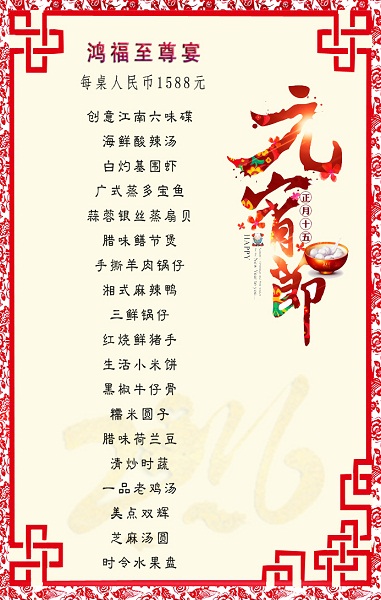 鸿福至尊宴
每桌人民币1588元
创意江南六味碟
海鲜酸辣汤
白灼基围虾
广式蒸多宝鱼
蒜蓉银丝蒸扇贝
腊味鳝节煲
手撕羊肉锅仔
湘式麻辣鸭
三鲜锅仔
红烧鲜猪手
生活小米饼
黑椒牛仔骨
糯米圆子
腊味荷兰豆
清炒时蔬
一品老鸡汤
美点双辉
芝麻汤圆
时令水果盘
元宵節
正月十五
HAPPY